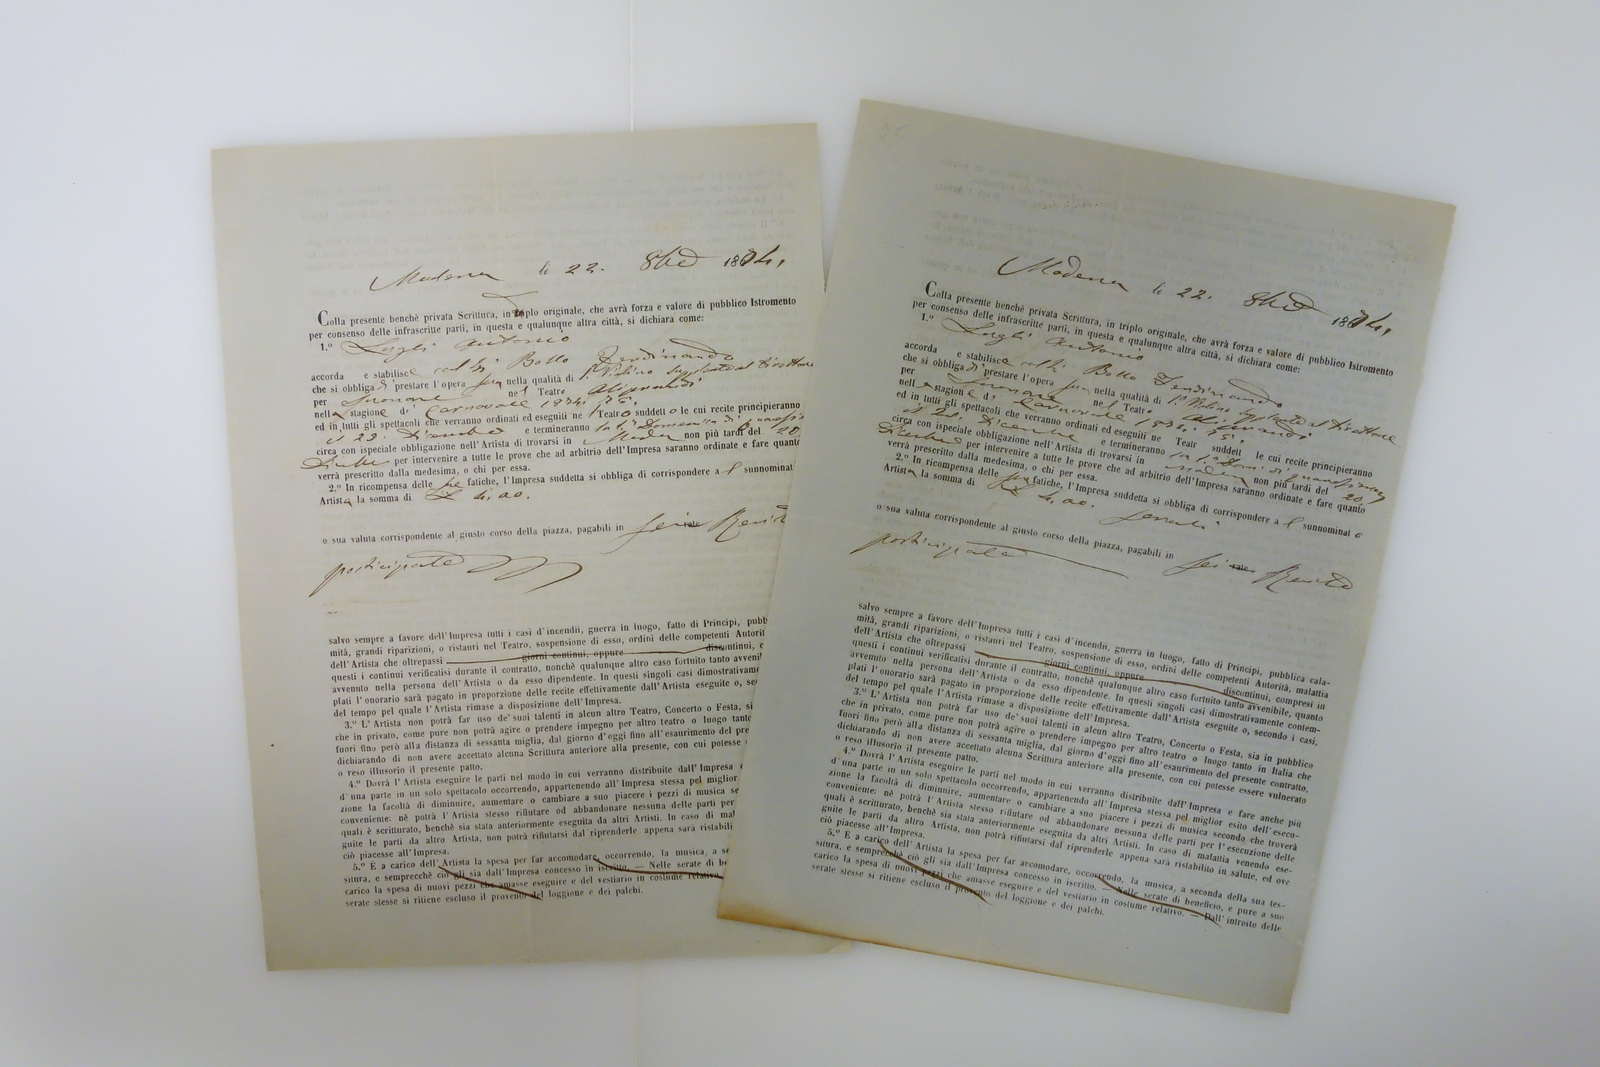 Modena li 22. 8bre 1874,
Colla presente benchè privata Scrittura, in triplo originale, che avrà forza e valore di pubblico Istromento
per consenso delle infrascritte parti, in questa e qualunque altra città, si dichiara come:
1.º Luglj Antonio
accorda e stabilisce Bollo Ferdinando
che si obbliga di prestare l'opera sua nella qualità di 1º Violino supplente al Direttore
per suonare nel Teatro Aliprandi
nella stagione di Carnovale 1874. 75.
ed in tutti gli spettacoli che verranno ordinati ed eseguiti ne Teatro suddetto le cui recite principieranno
e termineranno la 1ª Domenica di
circa con ispeciale obbligazione nell'Artista di trovarsi in non più tardi del 20
per intervenire a tutte le prove che ad arbitrio dell'Impresa saranno ordinate e fare quanto
verrà prescritto dalla medesima, o chi per essa.
2.º In ricompensa delle sue fatiche, l'Impresa suddetta si obbliga di corrispondere a l sunnominat
Artista la somma di
o sua valuta corrispondente al giusto corso della piazza, pagabili in sei rate
posticipate
salvo sempre a favore dell'Impresa tutti i casi d'incendii, guerra in luogo, fatto di Principi, pubb
mità, grandi riparizioni, o ristauri nel Teatro, sospensione di esso, ordini delle competenti Autorit
dell'Artista che oltrepassi giorni continui, oppure discontinui, c
questi i continui verificatisi durante il contratto, nonchè qualunque altro caso fortuito tanto avveni
avvenuto nella persona dell'Artista o da esso dipendente. In questi singoli casi dimostrativam
plati l'onorario sarà pagato in proporzione delle recite effettivamente dall'Artista eseguite o, se
del tempo pel quale l'Artista rimase a disposizione dell'Impresa.
3.º L'Artista non potrà far uso de'suoi talenti in alcun altro Teatro, Concerto o Festa, si
che in privato, come pure non potrà agire o prendere impegno per altro teatro o luogo tant
fuori fino però alla distanza di sessanta miglia, dal giorno d'oggi fino all'esaurimento del pre
dichiarando di non avere accettato alcuna Scrittura anteriore alla presente, con cui potesse
o reso illusorio il presente patto.
4.º Dovrà l'Artista eseguire le parti nel modo in cui verranno distribuite dall'Impresa
d'una parte in un solo spettacolo occorrendo, appartenendo all'Impresa stessa pel miglior
zione la facoltà di diminuire, aumentare o cambiare a suo piacere i pezzi di musica se
conveniente: nè potrà l'Artista stesso rifiutare od abbandonare nessuna delle parti per
quali è scritturato, benchè sia stata anteriormente eseguita da altri Artisti. In caso di mal
guite le parti da altro Artista, non potrà rifiutarsi dal riprenderle appena sarà ristabili
ciò piacesse all'Impresa.
5.º È a carico dell'Artista la spesa per far accomodare, occorrendo, la musica, a se
situra, e semprecchè ciò gli sia dall'Impresa concesso in iscritto. — Nelle serate di be
carico la spesa di nuovi pezzi che amasse eseguire e del vestiario in costume relativo
serate stesse si ritiene escluso il provento del loggione e dei palchi.
Modena li 22. 8bre 1874,
Colla presente benchè privata Scrittura, in triplo originale, che avrà forza e valore di pubblico Istromento
per consenso delle infrascritte parti, in questa e qualunque altra città, si dichiara come:
1.º Luglj Antonio
accorda e stabilisce Bollo Ferdinando
che si obbliga di prestare l'opera sua nella qualità di 1º Violino supplente al Direttore
per suonare nel Teatro Aliprandi
nell stagione di Carnovale 1874. 75.
ed in tutti gli spettacoli che verranno ordinati ed eseguiti ne Teatr suddett le cui recite principieranno
Dicembre e termineranno
circa con ispeciale obbligazione nell'Artista di trovarsi in non più tardi del 20
per intervenire a tutte le prove che ad arbitrio dell'Impresa saranno ordinate e fare quanto
verrà prescritto dalla medesima, o chi per essa.
2.º In ricompensa delle sue fatiche, l'Impresa suddetta si obbliga di corrispondere a l sunnominat o
Artista la somma di
o sua valuta corrispondente al giusto corso della piazza, pagabili in sei rate
posticipate
salvo sempre a favore dell'Impresa tutti i casi d'incendii, guerra in luogo, fatto di Principi, pubblica cala-
mità, grandi riparizioni, o ristauri nel Teatro, sospensione di esso, ordini delle competenti Autorità, malattia
dell'Artista che oltrepassi giorni continui, oppure discontinui, compresi in
questi i continui verificatisi durante il contratto, nonchè qualunque altro caso fortuito tanto avvenibile, quanto
avvenuto nella persona dell'Artista o da esso dipendente. In questi singoli casi dimostrativamente contem-
plati l'onorario sarà pagato in proporzione delle recite effettivamente dall'Artista eseguite o, secondo i casi,
del tempo pel quale l'Artista rimase a disposizione dell'Impresa.
3.º L'Artista non potrà far uso de'suoi talenti in alcun altro Teatro, Concerto o Festa, sia in pubblico
che in privato, come pure non potrà agire o prendere impegno per altro teatro o luogo tanto in Italia che
fuori fino però alla distanza di sessanta miglia, dal giorno d'oggi fino all'esaurimento del presente contratto,
dichiarando di non avere accettato alcuna Scrittura anteriore alla presente, con cui potesse essere vulnerato
o reso illusorio il presente patto.
4.º Dovrà l'Artista eseguire le parti nel modo in cui verranno distribuite dall'Impresa e fare anche più
d'una parte in un solo spettacolo occorrendo, appartenendo all'Impresa stessa pel miglior esito dell'esecu-
zione la facoltà di diminuire, aumentare o cambiare a suo piacere i pezzi di musica secondo che troverà
conveniente: nè potrà l'Artista stesso rifiutare od abbandonare nessuna delle parti per l'esecuzione delle
quali è scritturato, benchè sia stata anteriormente eseguita da altri Artisti. In caso di malattia venendo ese-
guite le parti da altro Artista, non potrà rifiutarsi dal riprenderle appena sarà ristabilito in salute, ed ove
ciò piacesse all'Impresa.
5.º È a carico dell'Artista la spesa per far accomodare, occorrendo, la musica, a seconda della sua tes-
situra, e semprecchè ciò gli sia dall'Impresa concesso in iscritto. — Nelle serate di beneficio, e pure a suo
carico la spesa di nuovi pezzi che amasse eseguire e del vestiario in costume relativo. — Dall'introito delle
serate stesse si ritiene escluso il provento del loggione e dei palchi.